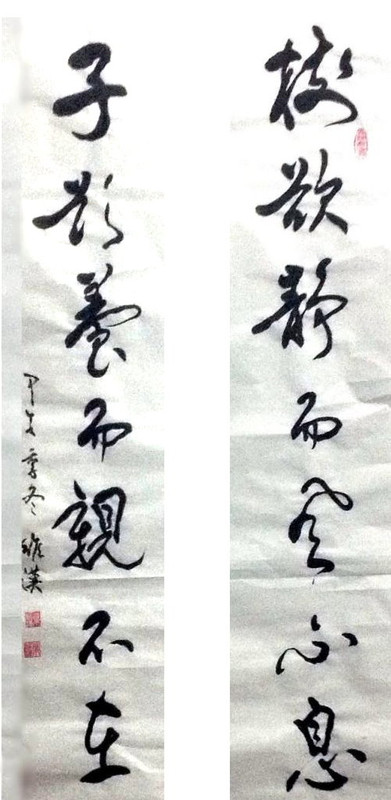 樹欲靜而風不息
子欲養而親不在
甲午季冬 維漢